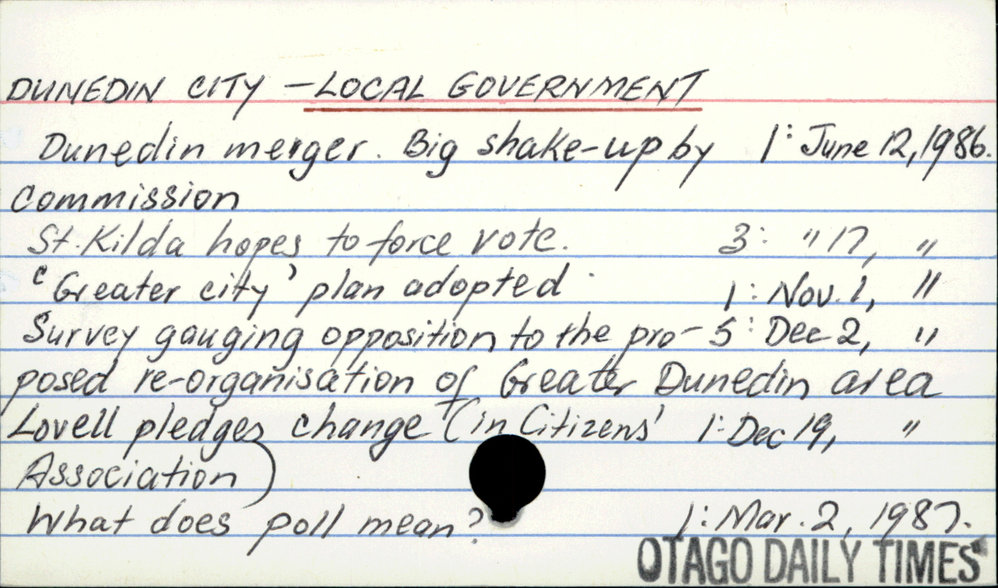 DUNEDIN CITY - LOCAL GOVERNMENT
Dunedin merger. Big shake-up by 1: June 12, 1986.
Commission
St. Kilda hopes to force vote. 3: " 17, "
'Greater city' plan adopted 1: Nov. 1, "
Survey gauging opposition to the pro- 5: Dec 2, "
posed re-organisation of Greater Dunedin area
Lovell pledges change (in Citizens' 1: Dec 19, "
Association)
What does poll mean? 1: Mar. 2, 1987.
OTAGO DAILY TIMES